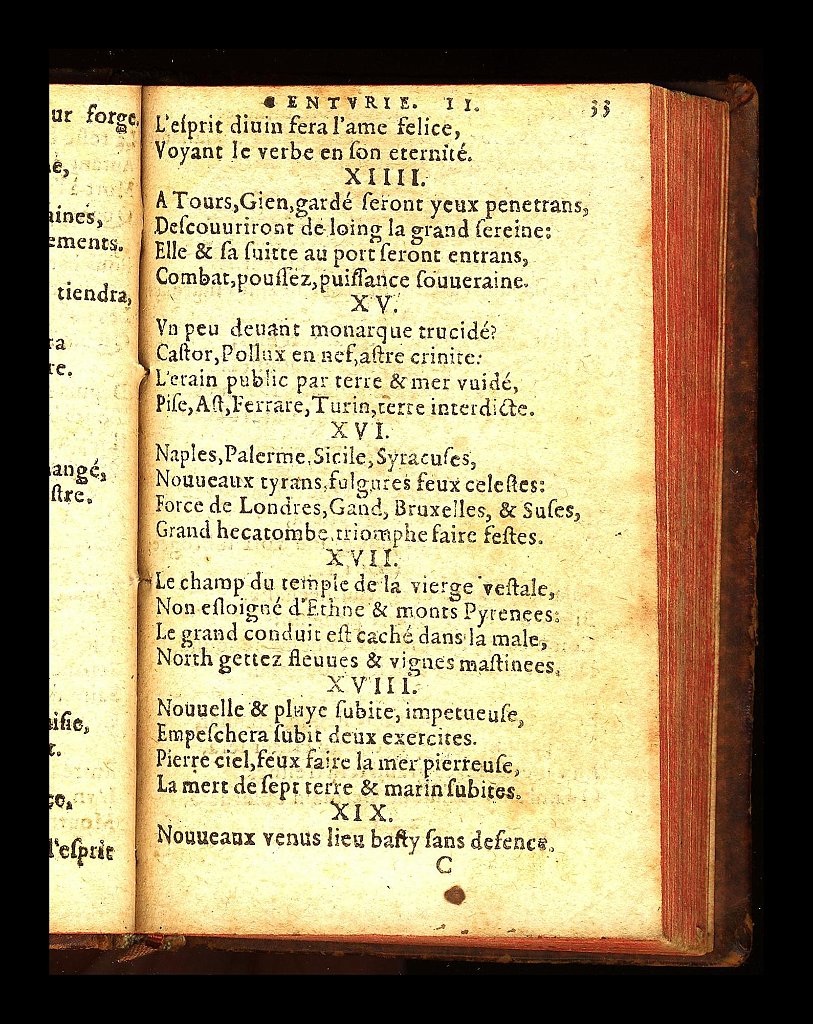 ur forge.
é,
aines,
ements.
tiendra,
ra
re.
angé,
ſtre.
iſie,
l'eſprit
CENTVRIE. II. 33
L'eſprit diuin fera l'ame felice,
Voyant le verbe en ſon eternité.
XIIII.
A Tours,Gien,gardé ſeront yeux penetrans,
Deſcouuriront de loing la grand ſereine:
Elle & ſa ſuitte au port ſeront entrans,
Combat,pouſſez,puiſſance ſouueraine.
XV.
Vn peu deuant monarque trucidé?
Caſtor,Pollux en nef,aſtre crinite:
L'erain public par terre & mer vuidé,
Piſe,Aſt,Ferrare,Turin,terre interdicte.
XVI.
Naples,Palerme,Sicile,Syracuſes,
Nouueaux tyrans,fulgures feux celeſtes:
Force de Londres,Gand, Bruxelles, & Suſes,
Grand hecatombe,triomphe faire feſtes.
XVII.
Le champ du temple de la vierge veſtale,
Non eſloigné d'Ethne & monts Pyrenees:
Le grand conduit eſt caché dans la male,
North gettez fleuues & vignes maſtinees.
XVIII.
Nouuelle & pluye ſubite, impetueuſe,
Empeſchera ſubit deux exercites.
Pierre ciel,feux faire la mer pierreuſe,
La mert de ſept terre & marin ſubites.
XIX.
Nouueaux venus lieu baſty ſans defence,
C